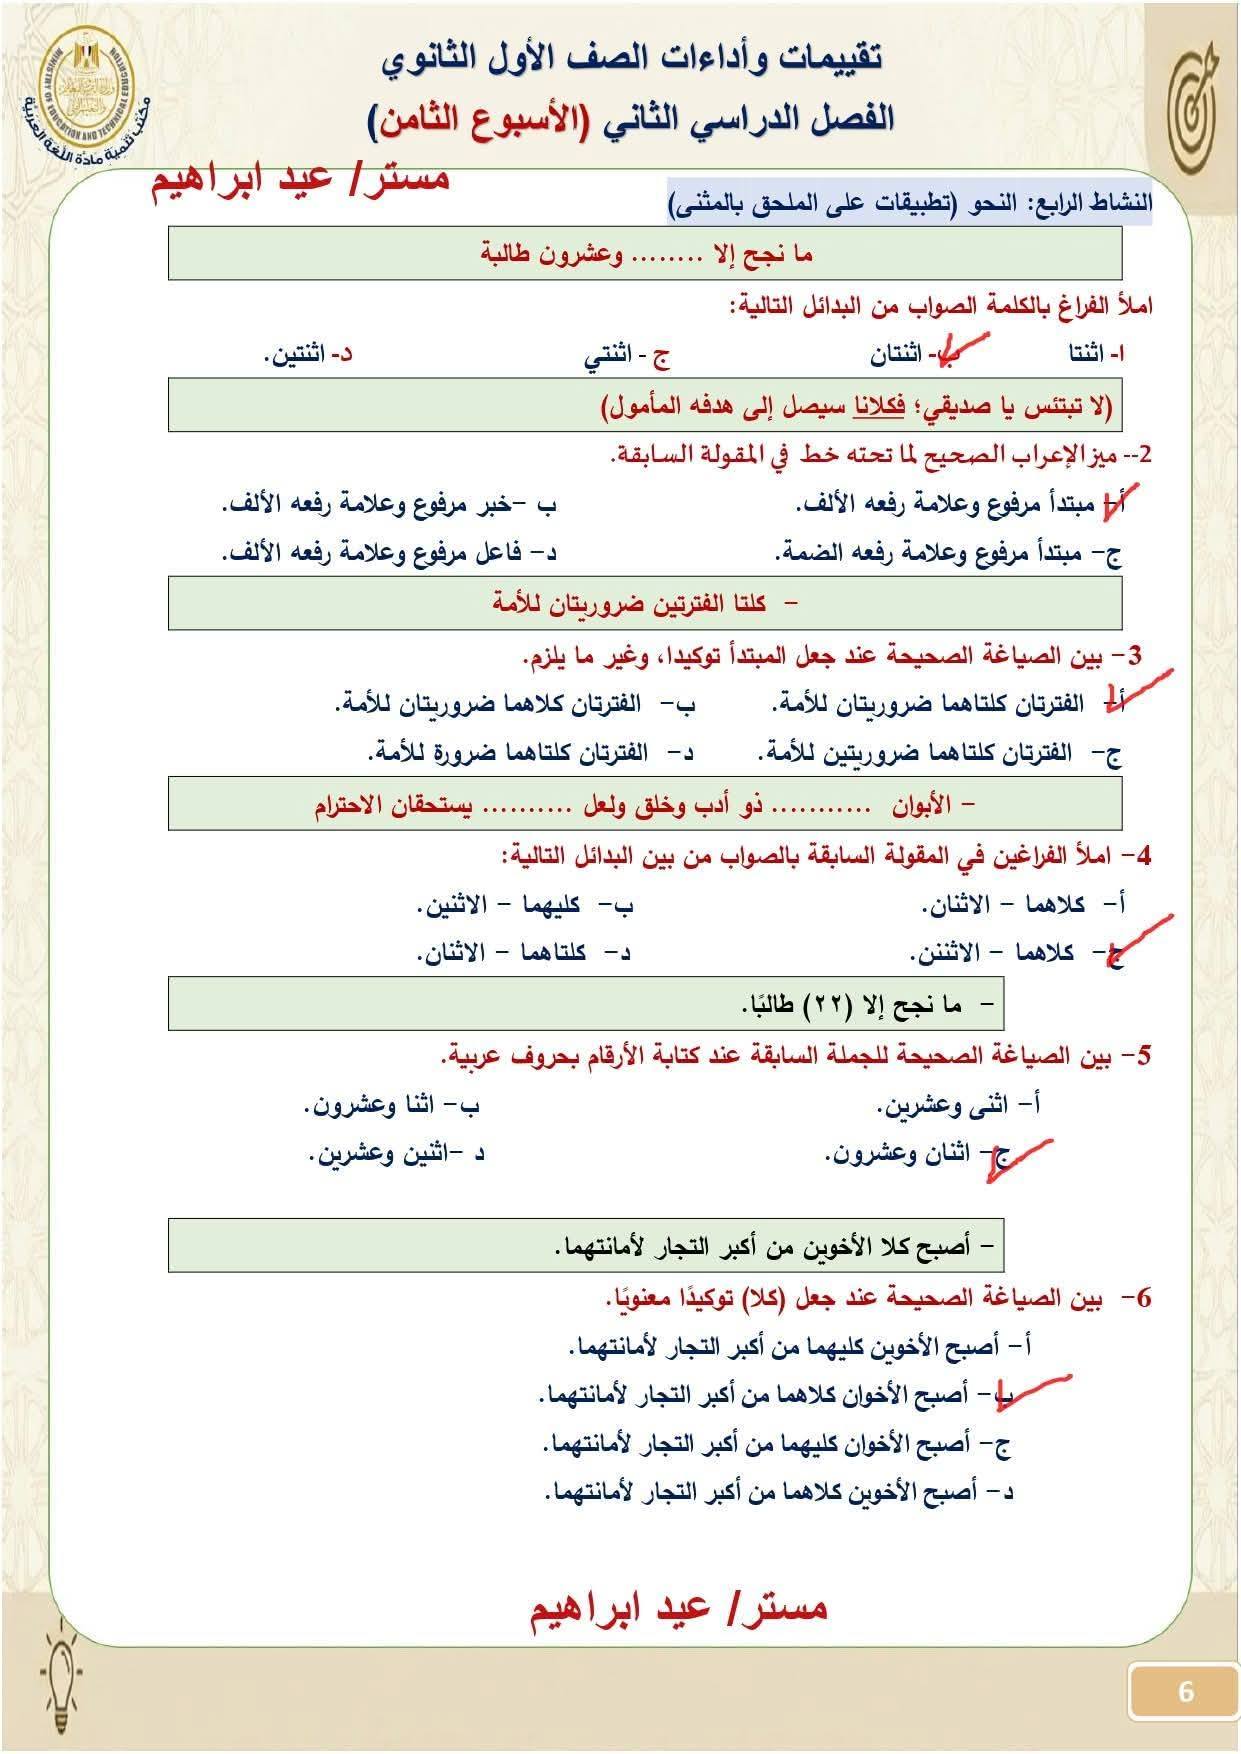 تقييمات وأداءات الصف الأول الثانوي
الفصل الدراسي الثاني (الأسبوع الثامن)
MINISTRY OF EDUCATION AND TECHNICAL EDUCATION
مكتب تنمية مادة اللغة العربية
مستر/ عيد ابراهيم
النشاط الرابع: النحو (تطبيقات على الملحق بالمثنى)
ما نجح إلا ........ وعشرون طالبة
املأ الفراغ بالكلمة الصواب من البدائل التالية:
ا- اثنتا ب- اثنتان ج - اثنتي د- اثنتين.
(لا تبتئس يا صديقي؛ فكلانا سيصل إلى هدفه المأمول)
2-- ميز الإعراب الصحيح لما تحته خط في المقولة السابقة.
أ- مبتدأ مرفوع وعلامة رفعه الألف. ب -خبر مرفوع وعلامة رفعه الألف.
ج- مبتدأ مرفوع وعلامة رفعه الضمة. د- فاعل مرفوع وعلامة رفعه الألف.
- كلتا الفترتين ضروريتان للأمة
3- بين الصياغة الصحيحة عند جعل المبتدأ توكيدا، وغير ما يلزم.
أ- الفترتان كلتاهما ضروريتان للأمة. ب- الفترتان كلاهما ضروريتان للأمة.
ج- الفترتان كلتاهما ضروريتين للأمة. د- الفترتان كلتاهما ضرورة للأمة.
- الأبوان ........... ذو أدب وخلق ولعل .......... يستحقان الاحترام
4- املأ الفراغين في المقولة السابقة بالصواب من بين البدائل التالية:
أ- كلاهما - الاثنان. ب- كليهما - الاثنين.
ج- كلاهما - الاثننن. د- كلتاهما - الاثنان.
- ما نجح إلا (٢٢) طالبًا.
5- بين الصياغة الصحيحة للجملة السابقة عند كتابة الأرقام بحروف عربية.
أ- اثنى وعشرين. ب- اثنا وعشرون.
ج- اثنان وعشرون. د -اثنين وعشرين.
- أصبح كلا الأخوين من أكبر التجار لأمانتهما.
6- بين الصياغة الصحيحة عند جعل (كلا) توكيدًا معنويًا.
أ- أصبح الأخوين كليهما من أكبر التجار لأمانتهما.
ب- أصبح الأخوان كلاهما من أكبر التجار لأمانتهما.
ج- أصبح الأخوان كليهما من أكبر التجار لأمانتهما.
د- أصبح الأخوين كلاهما من أكبر التجار لأمانتهما.
مستر/ عيد ابراهيم
6